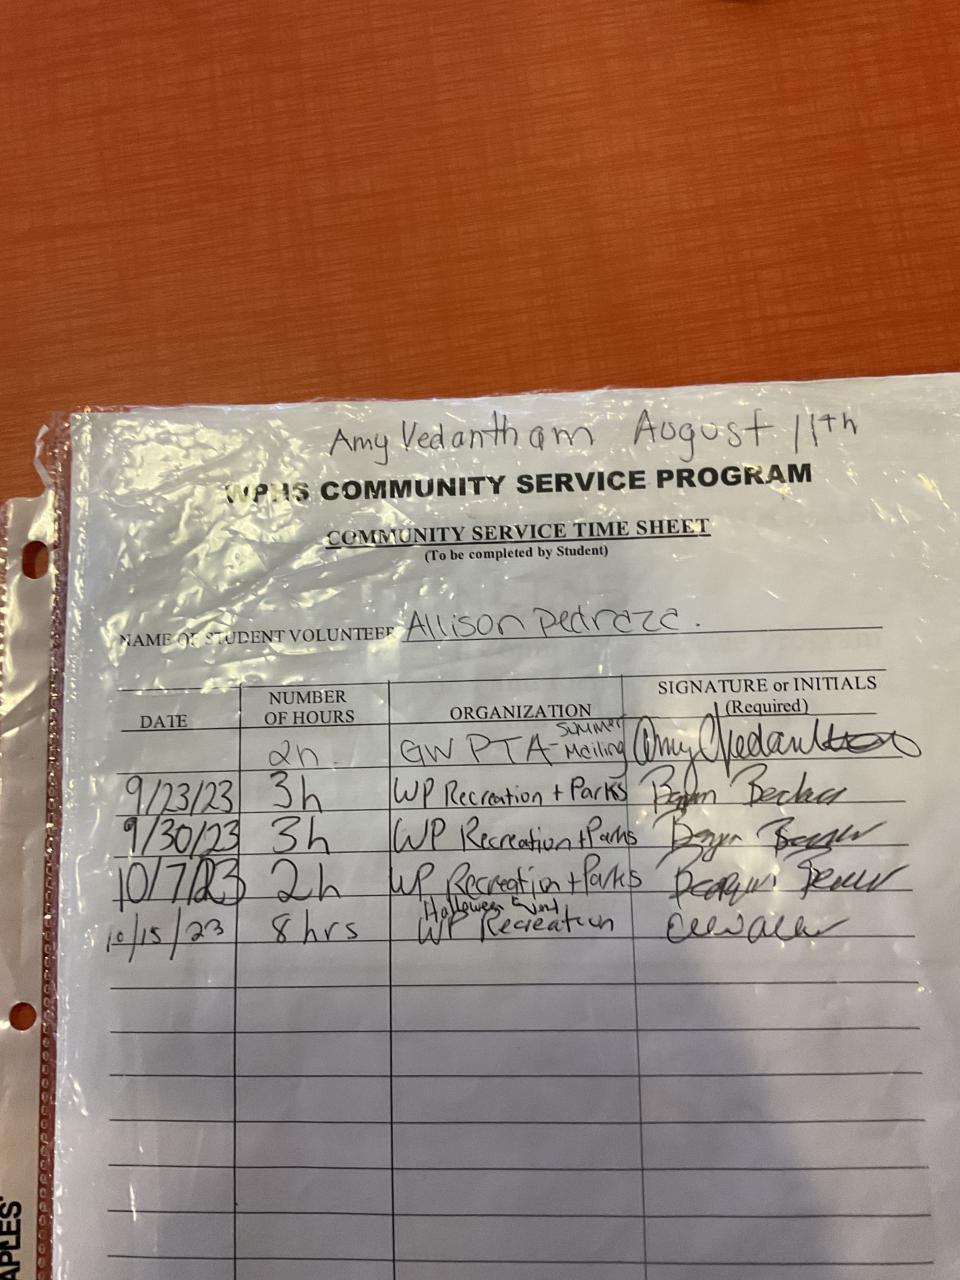 Amy Vedantham August 11th
WPHS COMMUNITY SERVICE PROGRAM
COMMUNITY SERVICE TIME SHEET
(To be completed by Student)
NAME OF STUDENT VOLUNTEER Allison Pedraza.
DATE NUMBER OF HOURS ORGANIZATION SIGNATURE or INITIALS (Required)
2h. GW PTA- Summer Mailing Amy Vedantham
9/23/23 3h WP Recreation + Parks
9/30/23 3h WP Recreation + Parks
10/7/23 2h WP Recreation + Parks
10/15/23 8 hrs Halloween Event WP Recreation
APLES